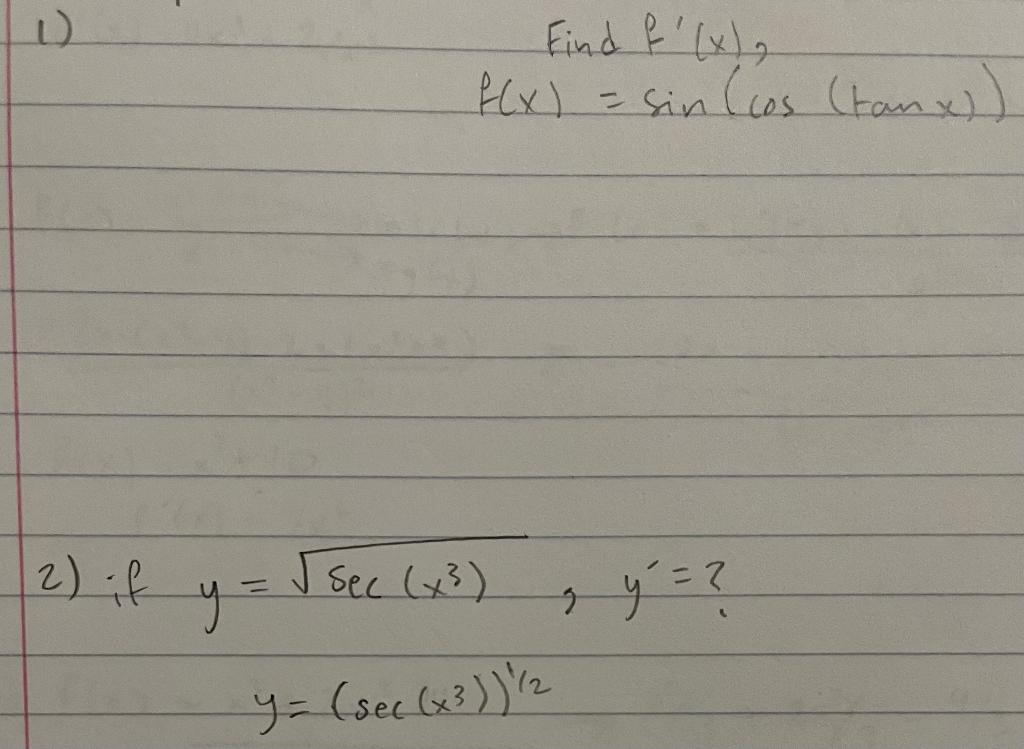 1) Find f'(x),
f(x) = sin(cos(tan x))
2) if y = √sec(x³) , y' = ?
y = (sec(x³))^1/2